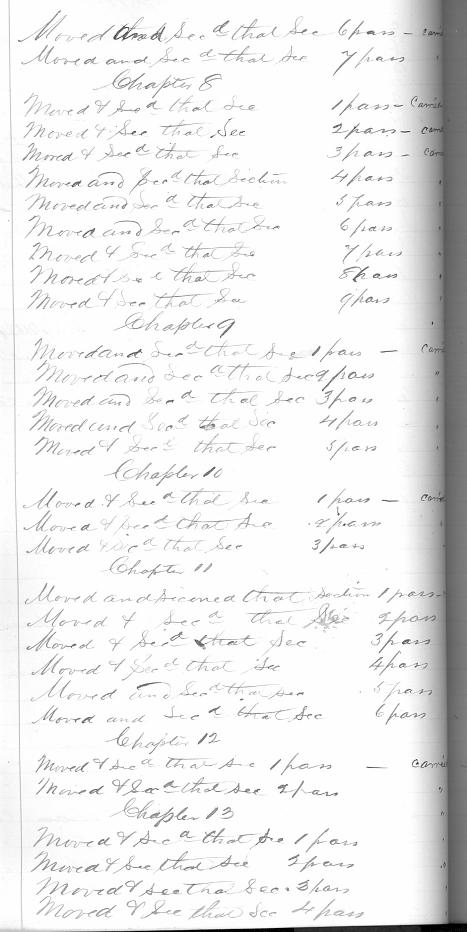 Moved and Sec^d that Sec 6 pass - carri
Moved and Sec^d that Sec 7 pass "
Chapter 8
Moved & Sec^d that Sec 1 pass - Carrie
Moved & Sec that Sec 2 pass - carri
Moved & Sec^d that Sec 3 pass - carri
Moved and Sec^d that Section 4 pass "
Moved and Sec^d that Sec 5 pass "
Moved and Sec^d that Sec 6 pass "
Moved & Sec^d that Sec 7 pass "
Moved & Sec^d that Sec 8 pass "
Moved & Sec that Sec 9 pass "
Chapter 9 "
Moved and Sec^d that Sec 1 pass - carri
Moved and Sec^d that Sec 2 pass "
Moved and Sec^d that Sec 3 pass "
Moved and Sec^d that Sec 4 pass "
Moved & Sec^d that Sec 5 pass "
Chapter 10
Moved & Sec^d that Sec 1 pass - carri
Moved & Sec^d that Sec 2 pass "
Moved & Sec^d that Sec 3 pass "
Chapter 11
Moved and Seconed that Section 1 pass -
Moved & Sec^d that Sec 2 pass
Moved & Sec^d that Sec 3 pass
Moved & Sec^d that Sec 4 pass
Moved and Sec^d that Sec 5 pass
Moved and Sec^d that Sec 6 pass
Chapter 12
Moved & Sec^d that Sec 1 pass - carri
Moved & Sec^d that Sec 2 pass "
Chapter 13 "
Moved & Sec^d that Sec 1 pass "
Moved & Sec that Sec 2 pass "
Moved & Sec that Sec. 3 pass "
Moved & Sec that Sec 4 pass "